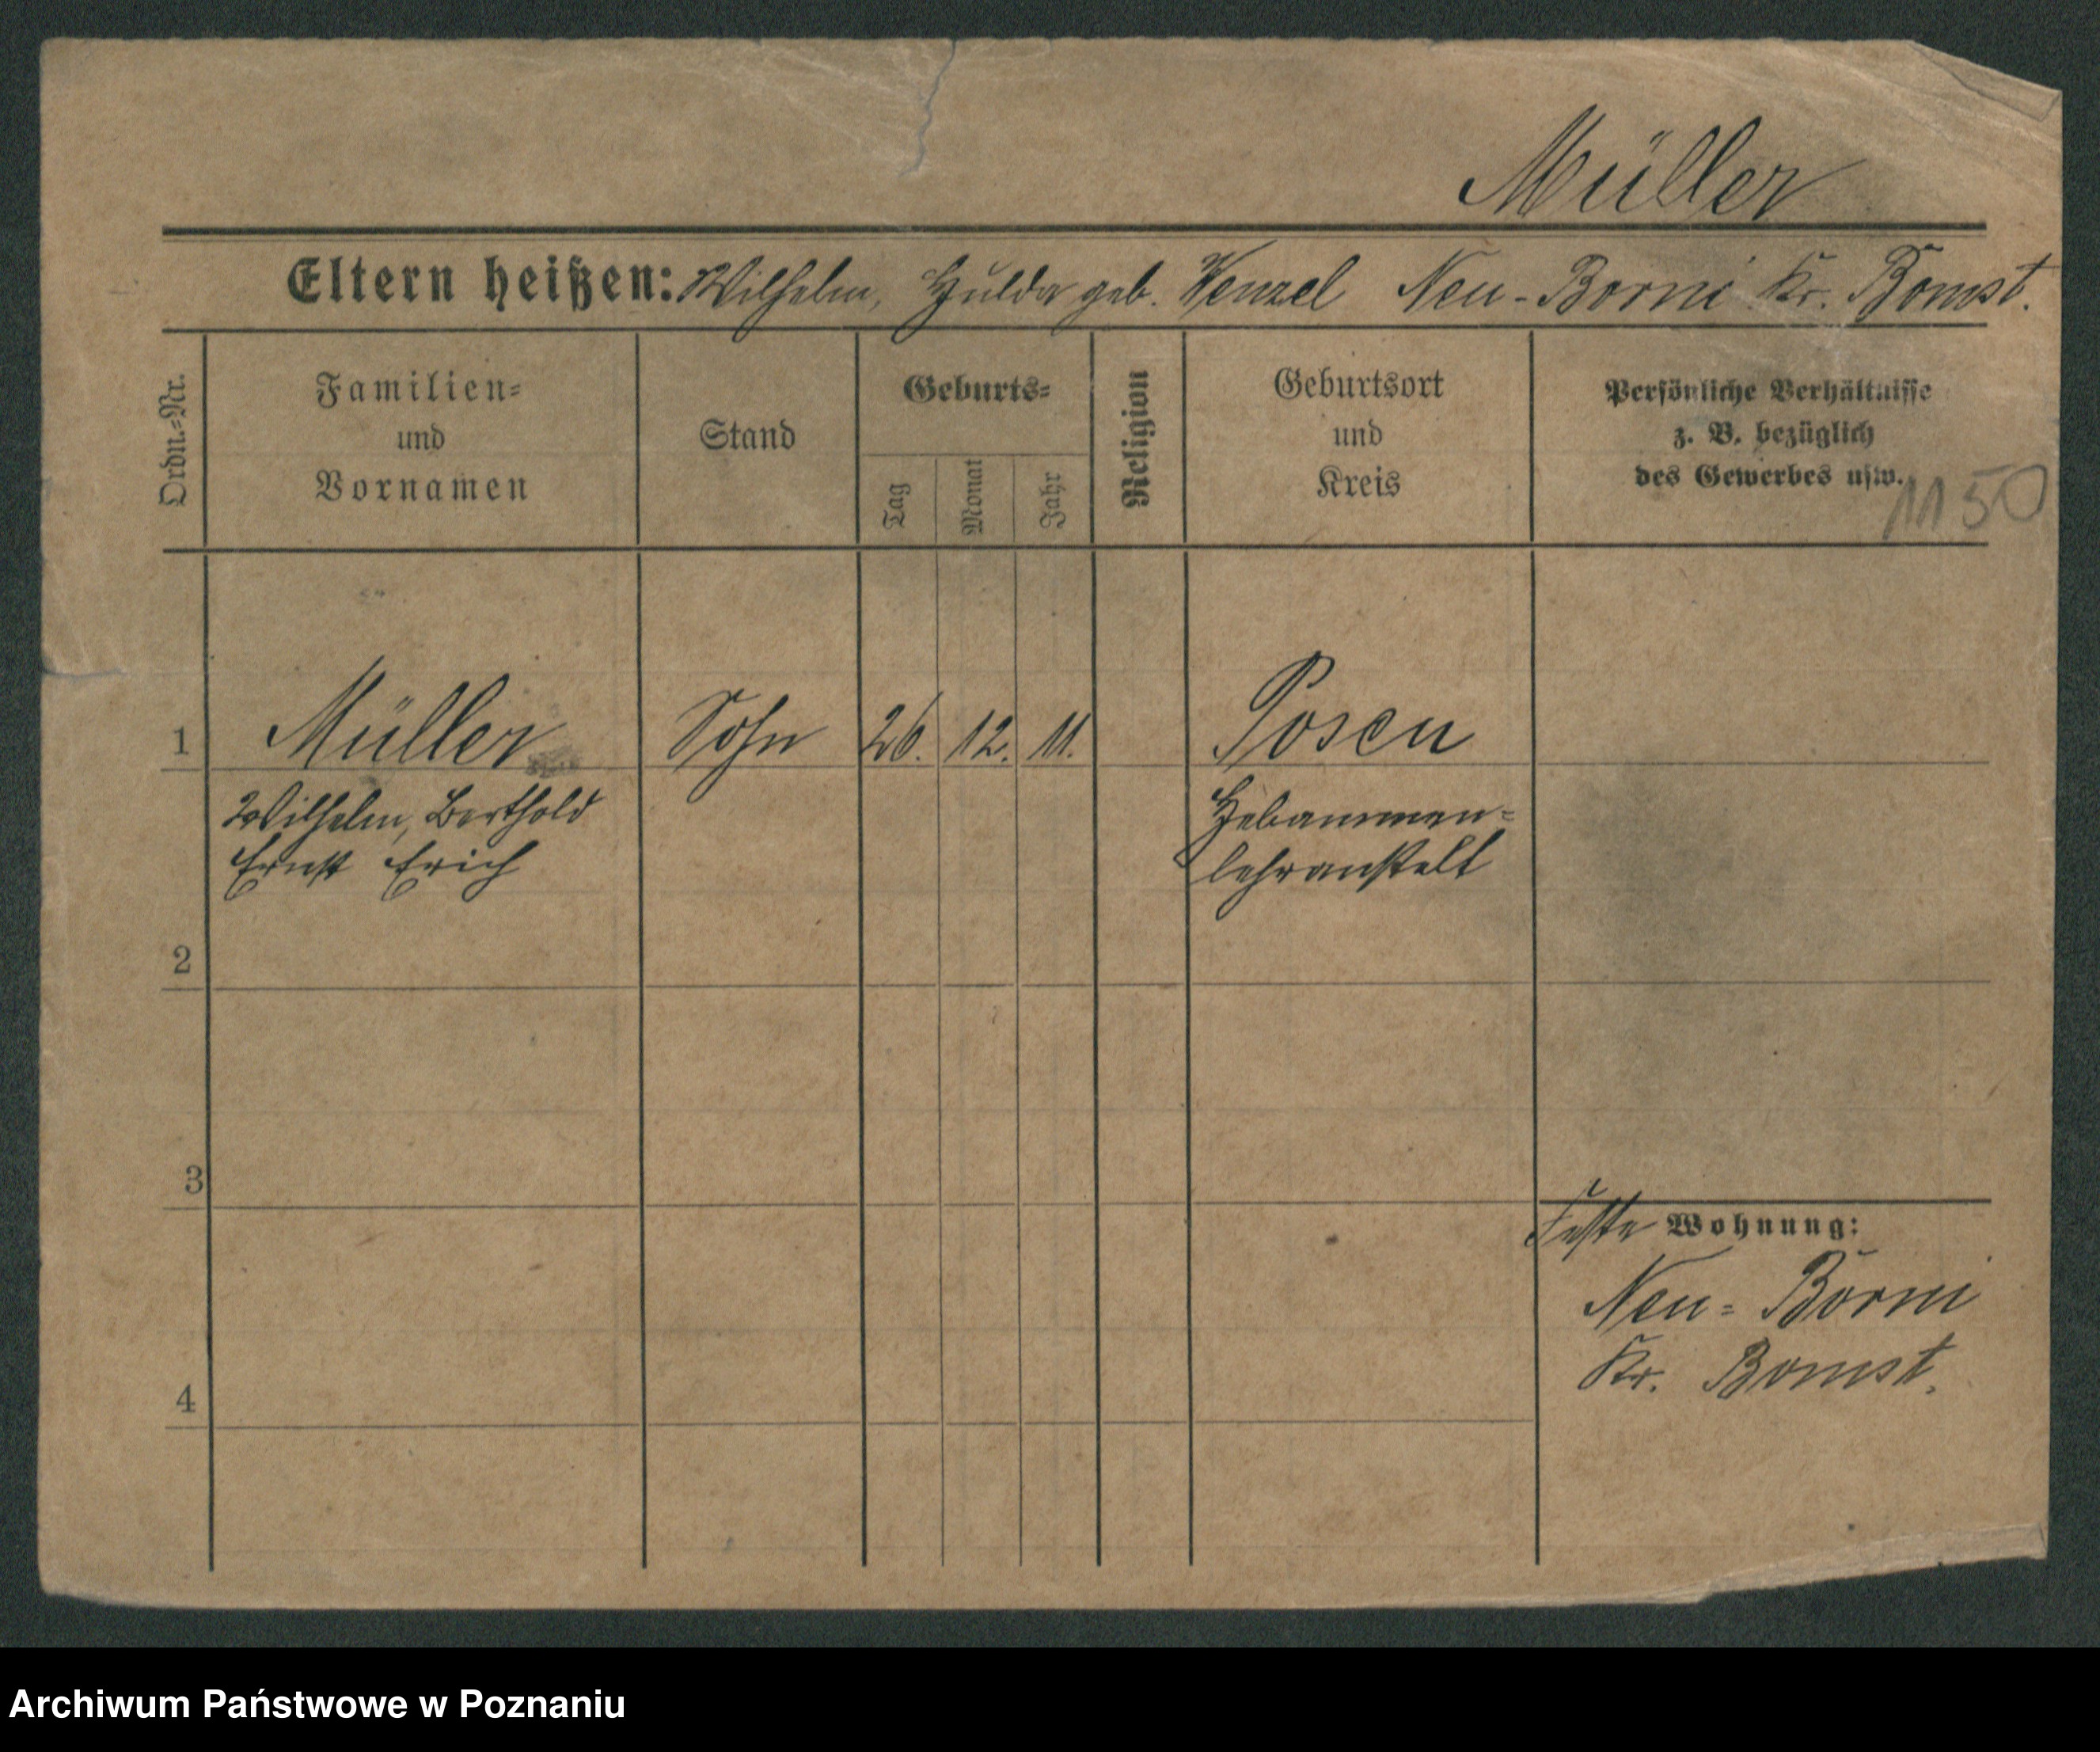 Müller
Eltern heißen: Wilhelm, Hulda geb. Wenzel Neu-Borui Kr. Bomst.
Ordn.-Nr.
Familien-
und
Vornamen
Stand
Geburts-
Tag
Monat
Jahr
Religion
Geburtsort
und
Kreis
Persönliche Verhältnisse
z. B. bezüglich
des Gewerbes usw.
1150
1 Müller Sohn 26. 12. 11. Posen
Wilhelm, Berthold Hebammen-
Ernst Erich lehranstalt
2
3
Feste Wohnung:
Neu-Borui
Kr. Bomst.
4
Archiwum Państwowe w Poznaniu